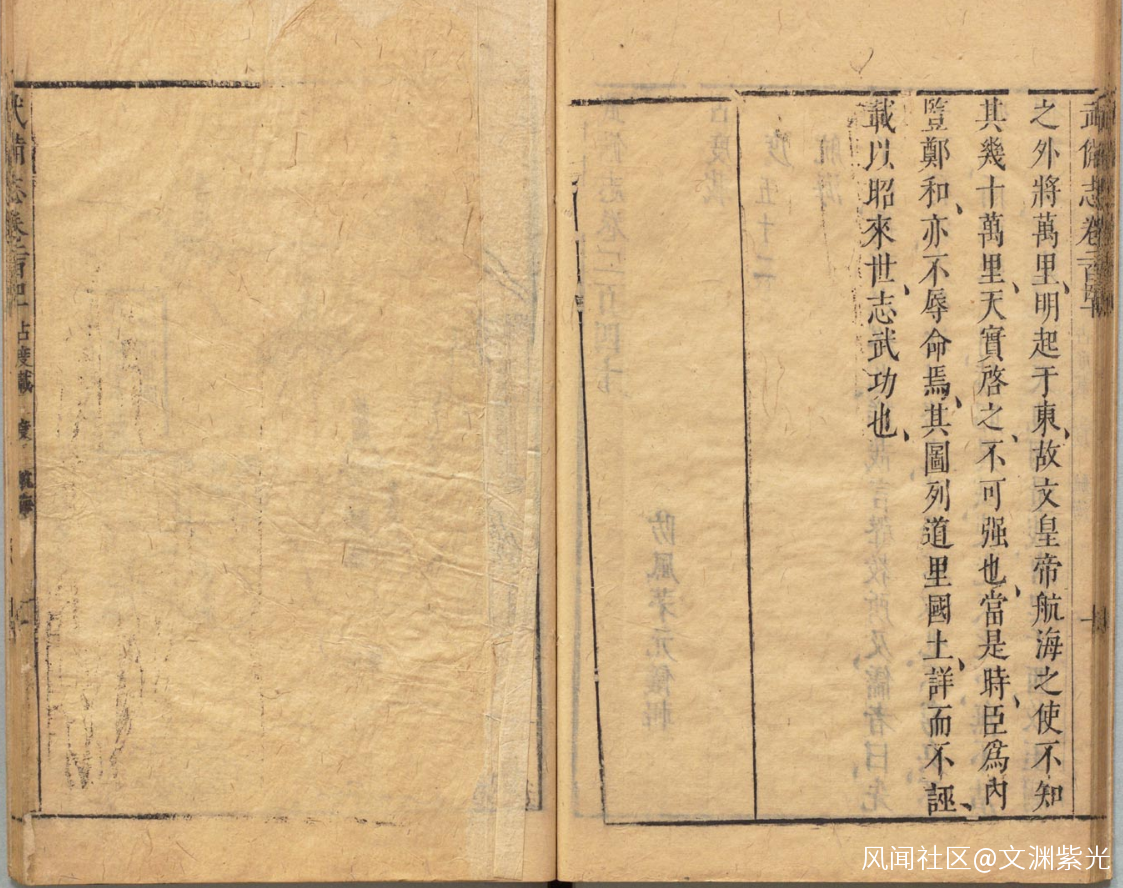 武備志卷二百四十
之外將萬里、明起于東、故文皇帝航海之使不知
其幾十萬里、天實啓之、不可强也、當是時、臣爲內
豎鄭和、亦不辱命焉、其圖列道里國土、詳而不誣、
載以昭來世、志武功也、
武備志卷二百四十 占度載 度 航海
风闻社区@文渊紫光